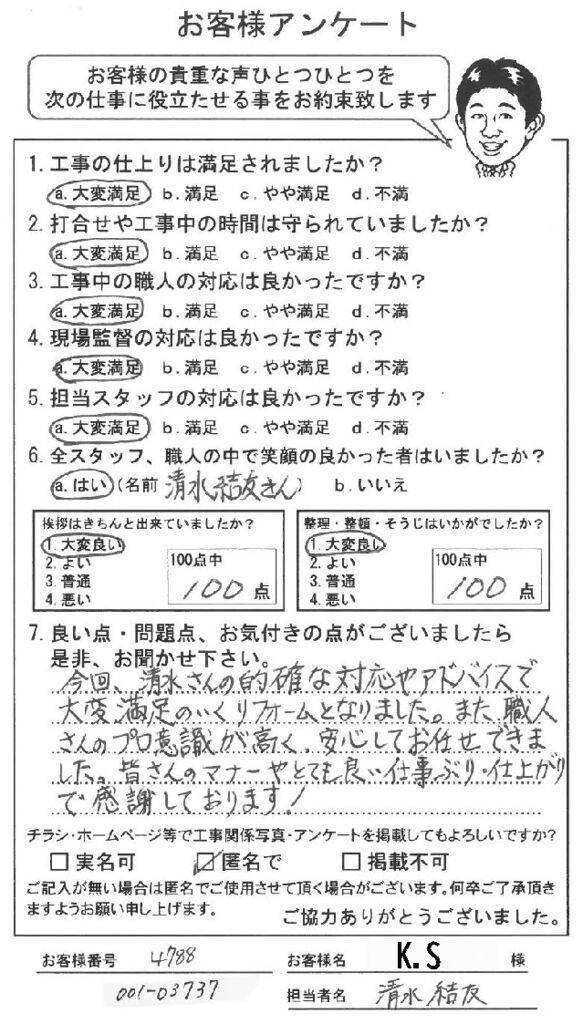 お客様アンケート
お客様の貴重な声ひとつひとつを
次の仕事に役立たせる事をお約束致します
1. 工事の仕上りは満足されましたか？
a. 大変満足 b. 満足 c. やや満足 d. 不満
2. 打合せや工事中の時間は守られていましたか？
a. 大変満足 b. 満足 c. やや満足 d. 不満
3. 工事中の職人の対応は良かったですか？
a. 大変満足 b. 満足 c. やや満足 d. 不満
4. 現場監督の対応は良かったですか？
a. 大変満足 b. 満足 c. やや満足 d. 不満
5. 担当スタッフの対応は良かったですか？
a. 大変満足 b. 満足 c. やや満足 d. 不満
6. 全スタッフ、職人の中で笑顔の良かった者はいましたか？
a. はい (名前 清水結友さん) b. いいえ
挨拶はきちんと出来ていましたか？
1. 大変良い
2. よい
3. 普通
4. 悪い
100点中
100 点
整理・整頓・そうじはいかがでしたか？
1. 大変良い
2. よい
3. 普通
4. 悪い
100点中
100 点
7. 良い点・問題点、お気付きの点がございましたら
是非、お聞かせ下さい。
今回、清水さんの的確な対応やアドバイスで
大変満足のいくリフォームとなりました。また職人
さんのプロ意識が高く、安心してお任せできま
した。皆さんのマナーやとても良い仕事ぶり・仕上がり
で感謝しております！
チラシ・ホームページ等で工事関係写真・アンケートを掲載してもよろしいですか？
□ 実名可 ☑ 匿名で □ 掲載不可
ご記入が無い場合は匿名でご使用させて頂く場合がございます。何卒ご了承頂き
ますようお願い申し上げます。
ご協力ありがとうございました。
お客様番号 4788
001-03737
お客様名 K.S 様
担当者名 清水 結友